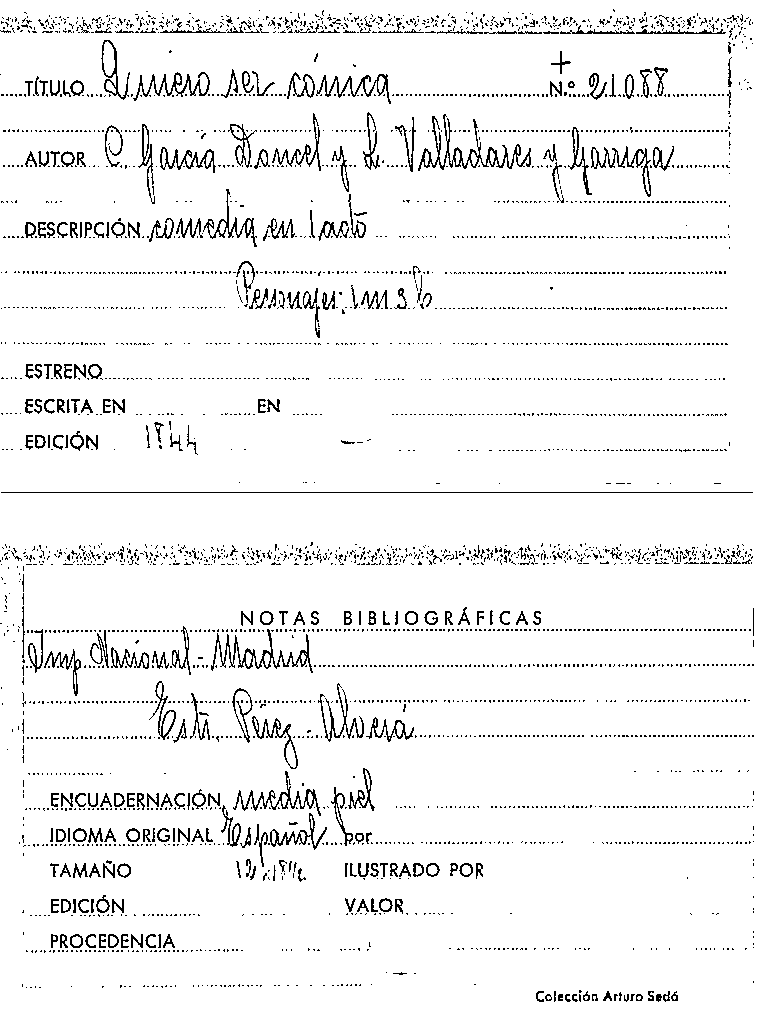 +
TÍTULO Quiero ser cómica N.º 21088
AUTOR C. García Doncel y L. Valladares y Garriga
DESCRIPCIÓN comedia en 1 acto
Personajes: 1 m 3 h
ESTRENO
ESCRITA EN EN
EDICIÓN 1844 —
NOTAS BIBLIOGRÁFICAS
Imp Nacional - Madrid
Estr. Pérez - Alverá
ENCUADERNACIÓN media piel
IDIOMA ORIGINAL Español por
TAMAÑO ILUSTRADO POR
EDICIÓN VALOR
PROCEDENCIA
Colección Arturo Sedó